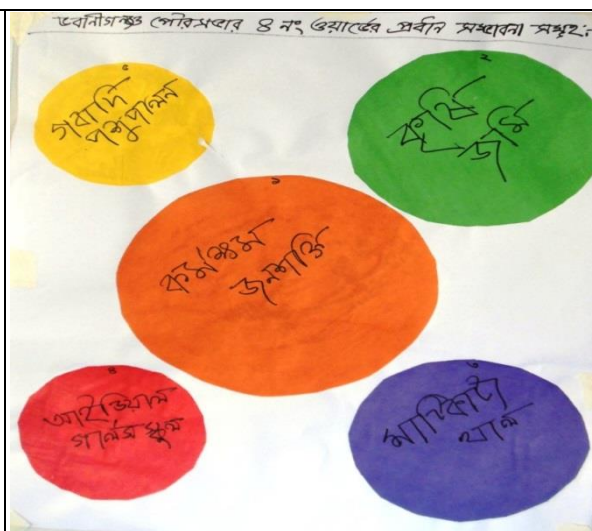 ভবানীগঞ্জ পৌরসভার ৪ নং ওয়ার্ডের প্রধান সম্ভাবনা সমূহ:
৫
গবাদি
পশুপালন
২
কৃষি
জমি
১
কর্মক্ষম
জনশক্তি
৪
আইডিয়াল
গার্লস স্কুল
৩
খাল